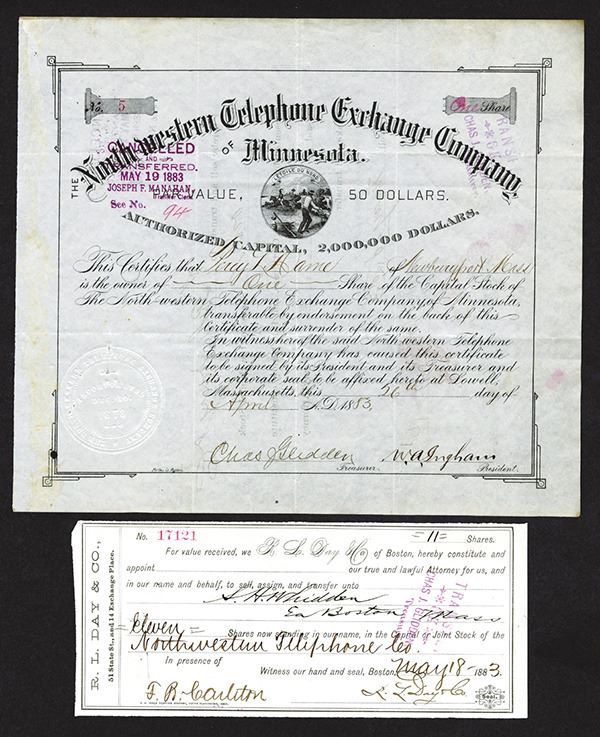 No. 5
One Share
THE North-western Telephone Exchange Company,
OF
Minnesota.
CANCELLED
AND
TRANSFERRED.
MAY 19 1883
JOSEPH F. MANAHAN,
See No. 94
L'ETOILE DU NORD
PAR VALUE, 50 DOLLARS.
AUTHORIZED CAPITAL, 2,000,000 DOLLARS.
This Certifies that of Newburyport Mass
is the owner of One Share of the Capital Stock of
The North-western Telephone Exchange Company of Minnesota,
transferable by endorsement on the back of this
Certificate and surrender of the same.
In witness hereof the said North-western Telephone
Exchange Company has caused this certificate
to be signed by its President and its Treasurer and
its corporate seal to be affixed hereto at Lowell,
Massachusetts, this 26th day of
April A.D. 1883.
Chas J Glidden W. A. Ingham
Treasurer. President.
R. L. DAY & CO.,
51 State St., and 14 Exchange Place.
No. 17121 =11= Shares.
For value received, we R. L. Day & Co of Boston, hereby constitute and
appoint our true and lawful Attorney for us, and
in our name and behalf, to sell, assign, and transfer unto
S. H. Whidden
Ea Boston Mass
eleven Shares now standing in our name, in the Capital or Joint Stock of the
Northwestern Telephone Co.
In presence of Witness our hand and seal, Boston, May 18 - 1883.
F. R. Carlton R. L. Day & Co.
Seal.